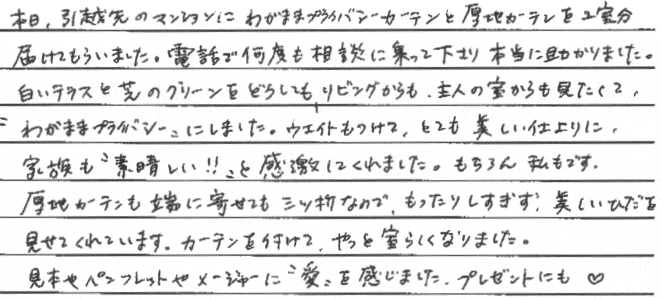 本日、引越先のマンションに わがままプライバシーカーテンと厚地カーテンを2室分
届けてもらいました。電話で何度も相談に乗って下さり 本当に助かりました。
白いテラスと芝のグリーンをどうしてもリビングからも、主人の室からも見たくて、
“わがままプライバシー„にしました。ウエイトもつけて、とても 美しい仕上りに、
家族も“素晴しい!!„と感激してくれました。もちろん 私もです。
厚地カーテンも端に寄せても三ツ物なので、もったりしすぎず、美しいひだを
見せてくれています。カーテンを付けて、やっと室らしくなりました。
見本やパンフレットやメージャーに“愛„を感じました。プレゼントにも ♡